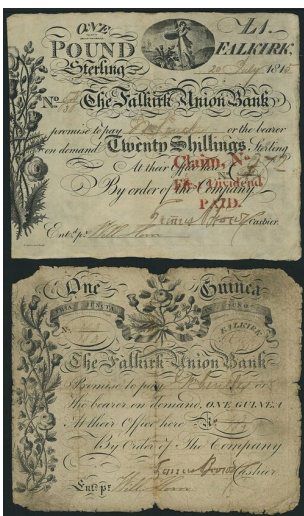 ONE
POUND
Sterling
L1.
FALKIRK.
July 1815
No. The Falkirk Union Bank
promise to pay or the bearer
on demand Twenty Shillings Sterling
At their Office here
Claim, No.
By order of The Company
First Dividend
PAID.
Cashier.
Entd. pr. Will
One Guinea
FALKIRK
No.
The Falkirk Union Bank
Promise to pay or
the bearer on demand, ONE GUINEA
At their Office here
By Order of The Company
Cashier
Entd. pr. Will